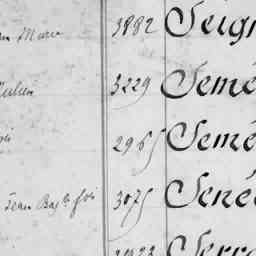 Marie 3882 Seig
3229 Semé
2965 Semé
Jean Bap.te 3075 Sené
Serr